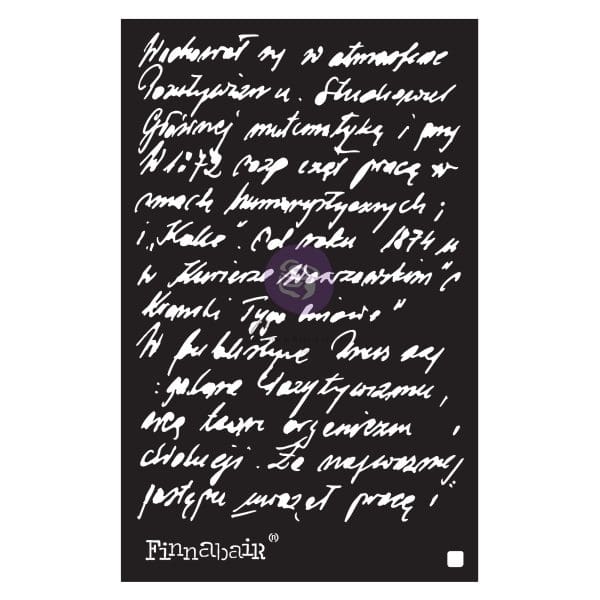 Wychował się w atmosferze
Pozytywizmu. Studiował
Głównej matematykę i przy
W 1872 rozpoczął pracę w
smach humorystycznych;
i „Kolce”. Od roku 1874 w
w Kurierze Warszawskim”
Kronski Tygodniowe”
W publistyce
Pozytywizmu,
organizm i
ewolucji. Za najważniej
postępu uważał pracę i”
Finnabair (R)